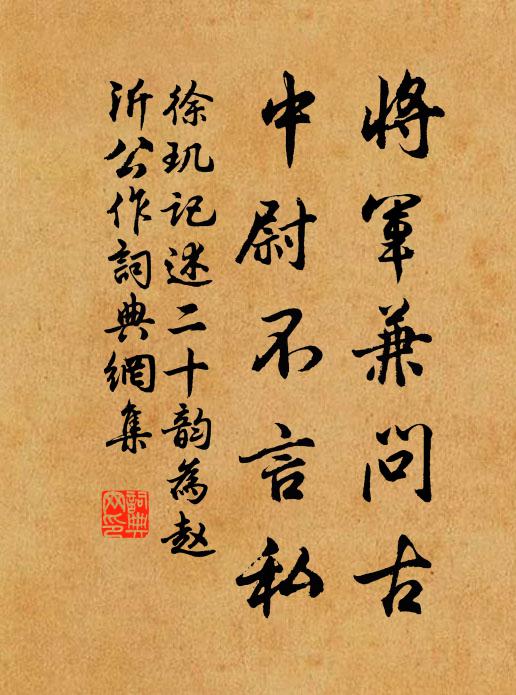 將軍兼問古
中尉不言私
徐玑记述二十韵為赵
沂公作詞典網集
詞典
网印